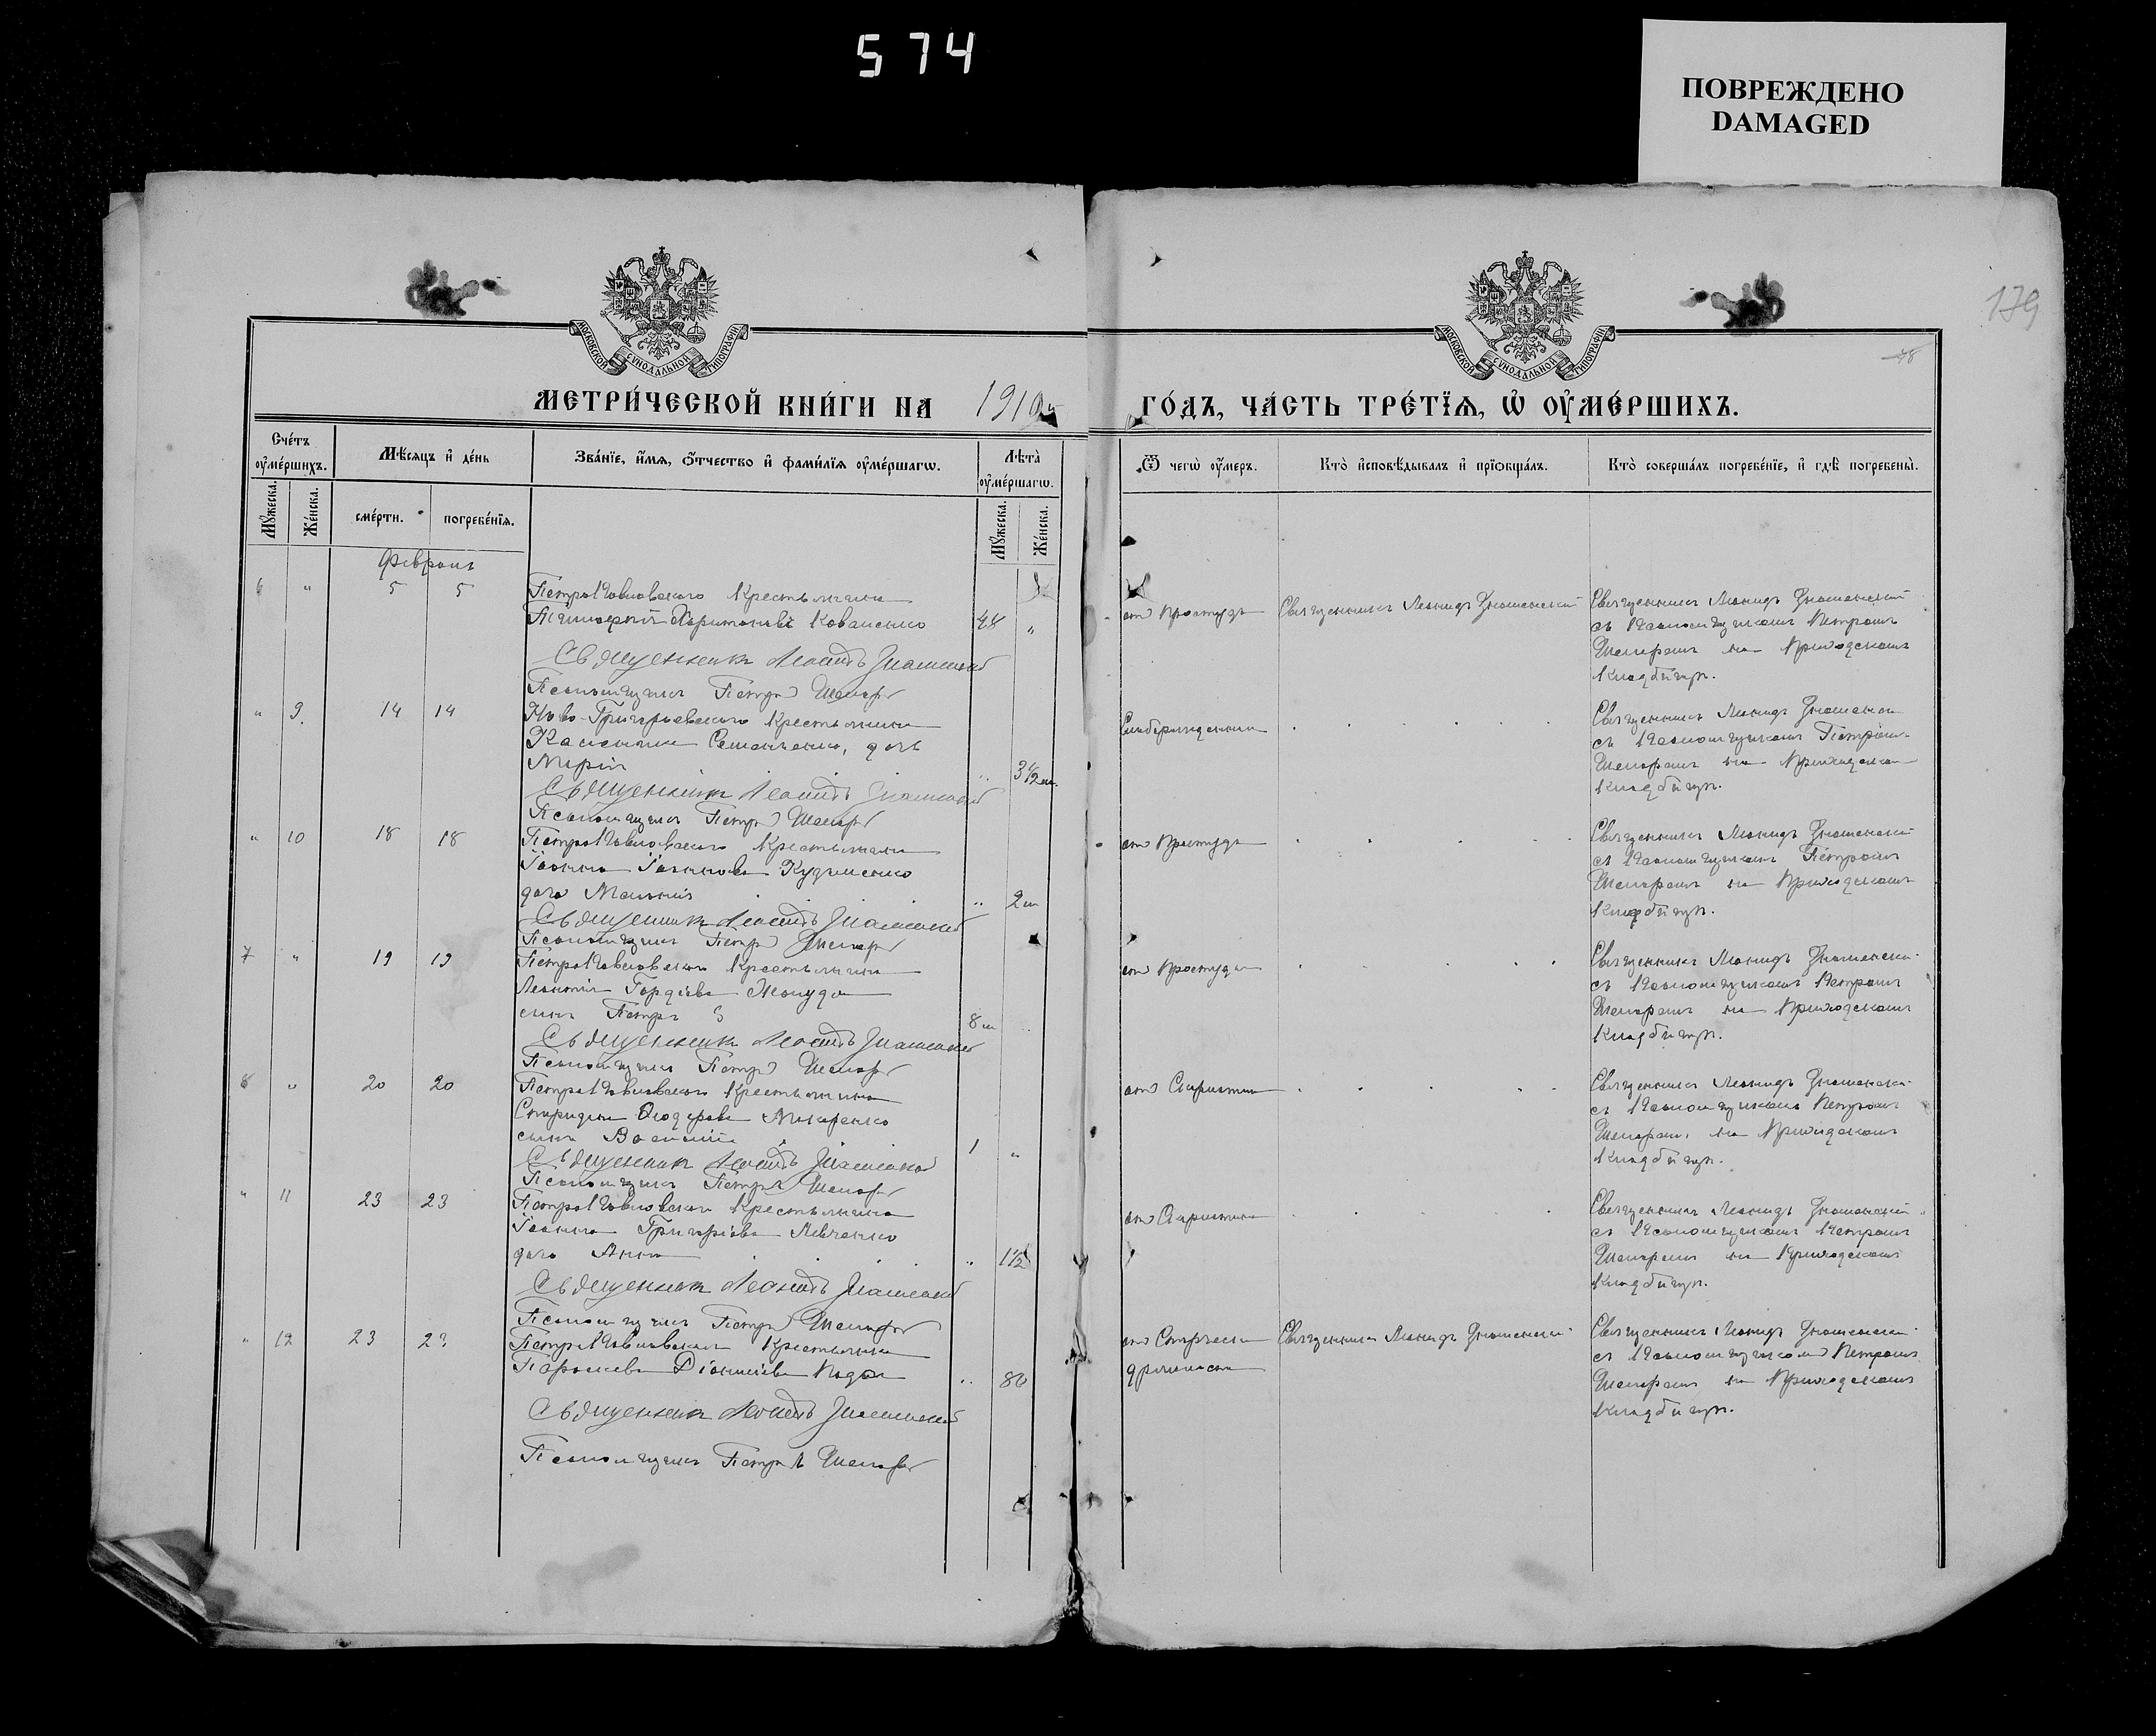 574
ПОВРЕЖДЕНО
DAMAGED
179
МОСКОВСКОЙ СѴНОДАЛЬНОЙ ТИПОГРАФІИ
МОСКОВСКОЙ СѴНОДАЛЬНОЙ ТИПОГРАФІИ
МЕТРИ́ЧЕСКОЙ КНИ́ГИ НА 1910 ГО́ДЪ, ЧА́СТЬ ТРЕ́ТЇѦ, Ѡ҆ ОУ҆МЕ́РШИХЪ.
Сче́тъ оу҆ме́ршихъ.
Мѣ́сяцъ и҆ де́нь
Зва́нїе, и҆́мя, ѻ҆́тчество и҆ фами́лїя оу҆ме́ршагѡ.
Лѣ́та оу҆ме́ршагѡ.
Ѿ чегѡ̀ оу҆́меръ.
Кто̀ и҆сповѣ́дывалъ и҆ прїѻбща́лъ.
Кто̀ соверша́лъ погребе́нїе, и҆ гдѣ̀ погребены̀.
Мꙋ́жеска.
Же́нска.
сме́рти.
погребе́нїя.
Мꙋ́жеска.
Же́нска.
Февраль
6 " 5 5 Петропавловскаго крестьянинъ
Харитоновъ Коваленко 48 "
от простуды Священникъ Леонидъ Знаменскій
Священникъ Леонидъ Знаменскій
съ псаломщикомъ Петромъ
Шапаромъ на приходскомъ
кладбищѣ.
Священникъ Леонидъ Знаменскій
Псаломщикъ Петръ Шапаръ
" 9. 14 14 Ново-Григорьевскаго крестьянина
Семенченко, дочь
Марія " 3 1/2 м.
Священникъ Леонидъ Знаменскій
съ псаломщикомъ Петромъ
Шапаромъ на приходскомъ
кладбищѣ.
Священникъ Леонидъ Знаменскій
Псаломщикъ Петръ Шапаръ
" 10 18 18 Петропавловскаго крестьянина
Іоанна Іоаннова Кузьменко
дочь " 2 м
от простуды
Священникъ Леонидъ Знаменскій
съ псаломщикомъ Петромъ
Шапаромъ на приходскомъ
кладбищѣ.
Священникъ Леонидъ Знаменскій
Псаломщикъ Петръ Шапаръ
7 " 19 19 Петропавловскаго крестьянина
Леонтія Гордіева
сынъ Петръ 8 м
от простуды
Священникъ Леонидъ Знаменскій
съ псаломщикомъ Петромъ
Шапаромъ на приходскомъ
кладбищѣ.
Священникъ Леонидъ Знаменскій
Псаломщикъ Петръ Шапаръ
8 " 20 20 Петропавловскаго крестьянина
Спиридона Ѳеодорова Макаренко
сынъ Василій 1 "
Священникъ Леонидъ Знаменскій
съ псаломщикомъ Петромъ
Шапаромъ на приходскомъ
кладбищѣ.
Священникъ Леонидъ Знаменскій
Псаломщикъ Петръ Шапаръ
" 11 23 23 Петропавловскаго крестьянина
Іоанна Григоріева Левченко
дочь Анна " 1 1/2
Священникъ Леонидъ Знаменскій
съ псаломщикомъ Петромъ
Шапаромъ на приходскомъ
кладбищѣ.
Священникъ Леонидъ Знаменскій
Псаломщикъ Петръ Шапаръ
" 12 23 23 Петропавловская крестьянка
Діонисіева " 80
Священникъ Леонидъ Знаменскій
Священникъ Леонидъ Знаменскій
съ псаломщикомъ Петромъ
Шапаромъ на приходскомъ
кладбищѣ.
Священникъ Леонидъ Знаменскій
Псаломщикъ Петръ Шапаръ